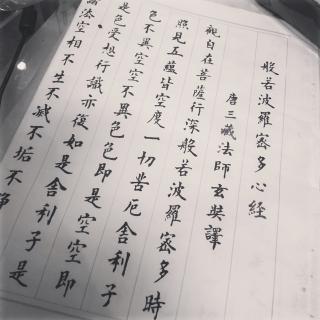 般若波羅密多心經
唐三藏法師玄奘譯
觀自在菩薩行深般若波羅密多時
照見五蘊皆空度一切苦厄舍利子
色不異空空不異色色即是空空即
是色受想行識亦復如是舍利子是
諸法空相不生不滅不垢不淨